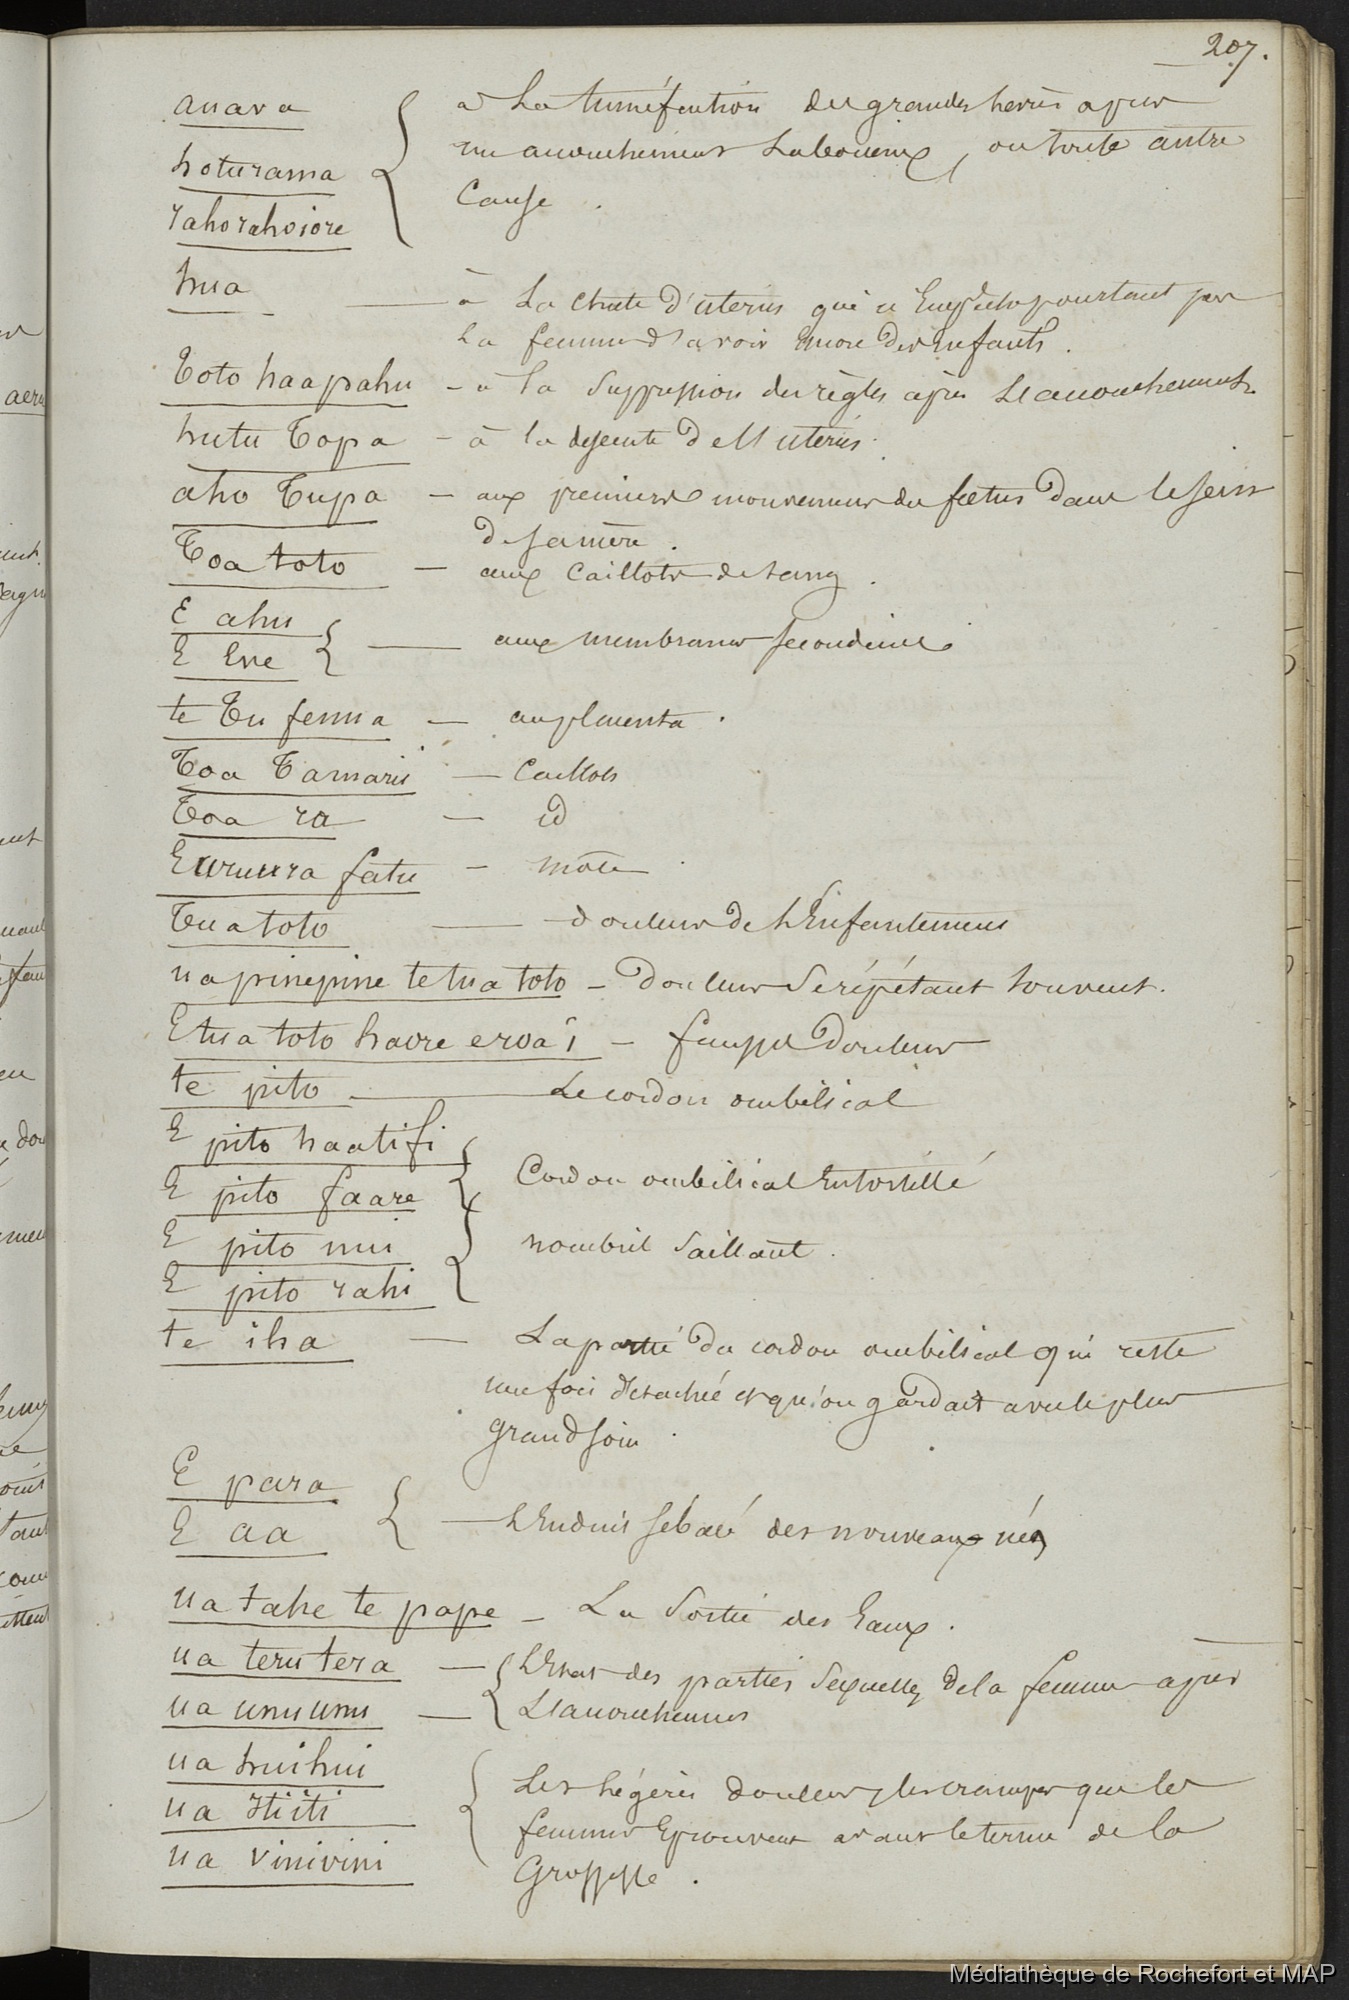 207.
anava
hoturama
rahorahoiore
à La tuméfaction des grandes lèvres après
un accouchement Laborieux, ou toute autre
Cause.
hua — à La chute d'utérus qui n'Empêche pourtant pas
La femme d'avoir Encore des Enfants.
Toto haapahu - à la Suppression des règles après L'accouchement
hutu Topa - à la descente de l'utérus.
aho Tupa — aux premiers mouvements du fœtus dans le sein
de sa mère.
Toa toto — aux Caillots de sang.
E ahu
E Eve
— aux membranes secondines.
te Tu fenua — au placenta.
Toa Tamarii — Caillots
Toa ra — id
Euruura fatu - môle
Tua toto — douleurs de L'Enfantement
ua pinepine te tua toto - Douleurs Se répétant souvent.
E tua toto haere eroa i - fausses Douleurs
te pito — Le cordon ombilical
E pito haatifi
E pito faare
Cordon ombilical Entortillé
E pito nui
E pito rahi
nombril Saillant.
te iha — La partie du cordon ombilical qui reste
une fois détachée et qu'on gardait avec le plus
grand soin.
E para
E aa
— L'Enduit sébacé des nouveaux nés
ua tahe te pape - La Sortie des Eaux.
ua teru tera —
ua unuunu —
L'Etat des parties Sexuelles de la femme après
L'accouchement
ua huihui
ua itiiti
ua vinivini
Les Légères douleurs, les crampes que les
femmes Eprouvent avant le terme de la
Grossesse.
Médiathèque de Rochefort et MAP